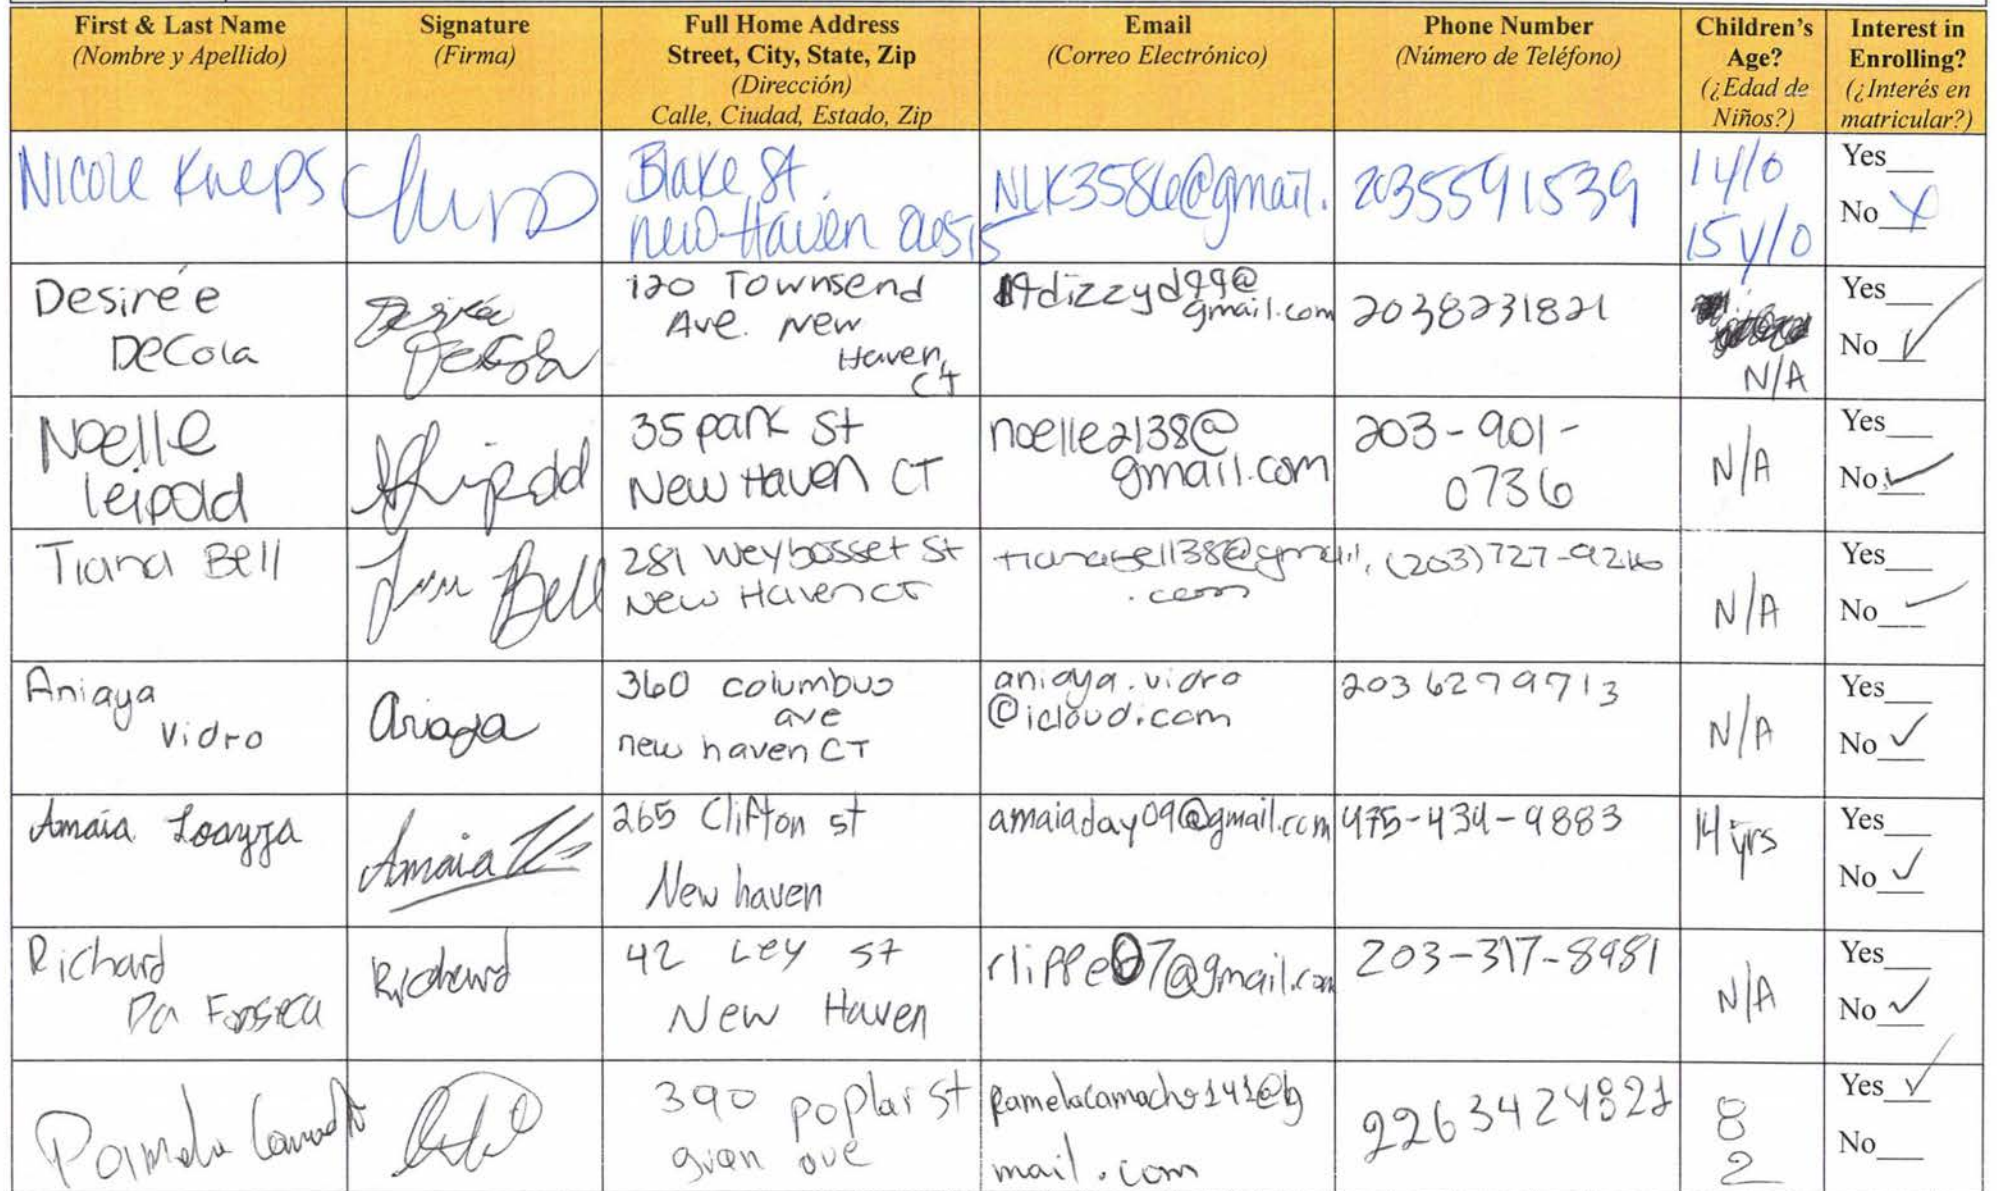 First & Last Name
(Nombre y Apellido)
Signature
(Firma)
Full Home Address
Street, City, State, Zip
(Dirección)
Calle, Ciudad, Estado, Zip
Email
(Correo Electrónico)
Phone Number
(Número de Teléfono)
Children's
Age?
(¿Edad de
Niños?)
Interest in
Enrolling?
(¿Interés en
matricular?)
Nicole Kneps
Blake St.
New Haven 06515
NLK3586@gmail.
2035591539
14/0
15 y/o
Yes
No X
Desirée
DeCola
Desirée
DeCola
120 Townsend
Ave. New
Haven,
CT
dizzyd99@
gmail.com
2038231821
N/A
Yes
No ✓
Noelle
Leipold
35 park St
New Haven CT
noelle2138@
gmail.com
203-901-
0736
N/A
Yes
No ✓
Tiana Bell
Bell
281 Weybosset St
New Haven CT
tianabell138@gmail
.com
(203)727-9216
N/A
Yes
No ✓
Aniaya
Vidro
Aniaya
360 columbus
ave
new haven CT
aniaya.vidro
@icloud.com
2036279713
N/A
Yes
No ✓
Amaia Loayza
Amaia
265 Clifton st
New haven
amaiaday09@gmail.com
475-434-9883
14 yrs
Yes
No ✓
Richard
Da Fonseca
Richard
42 Ley st
New Haven
rliffe07@gmail.com
203-317-8981
N/A
Yes
No ✓
Pamela Camacho
390 poplar st
gran ave
pamelacamacho141@g
mail.com
2263424821
8
2
Yes ✓
No